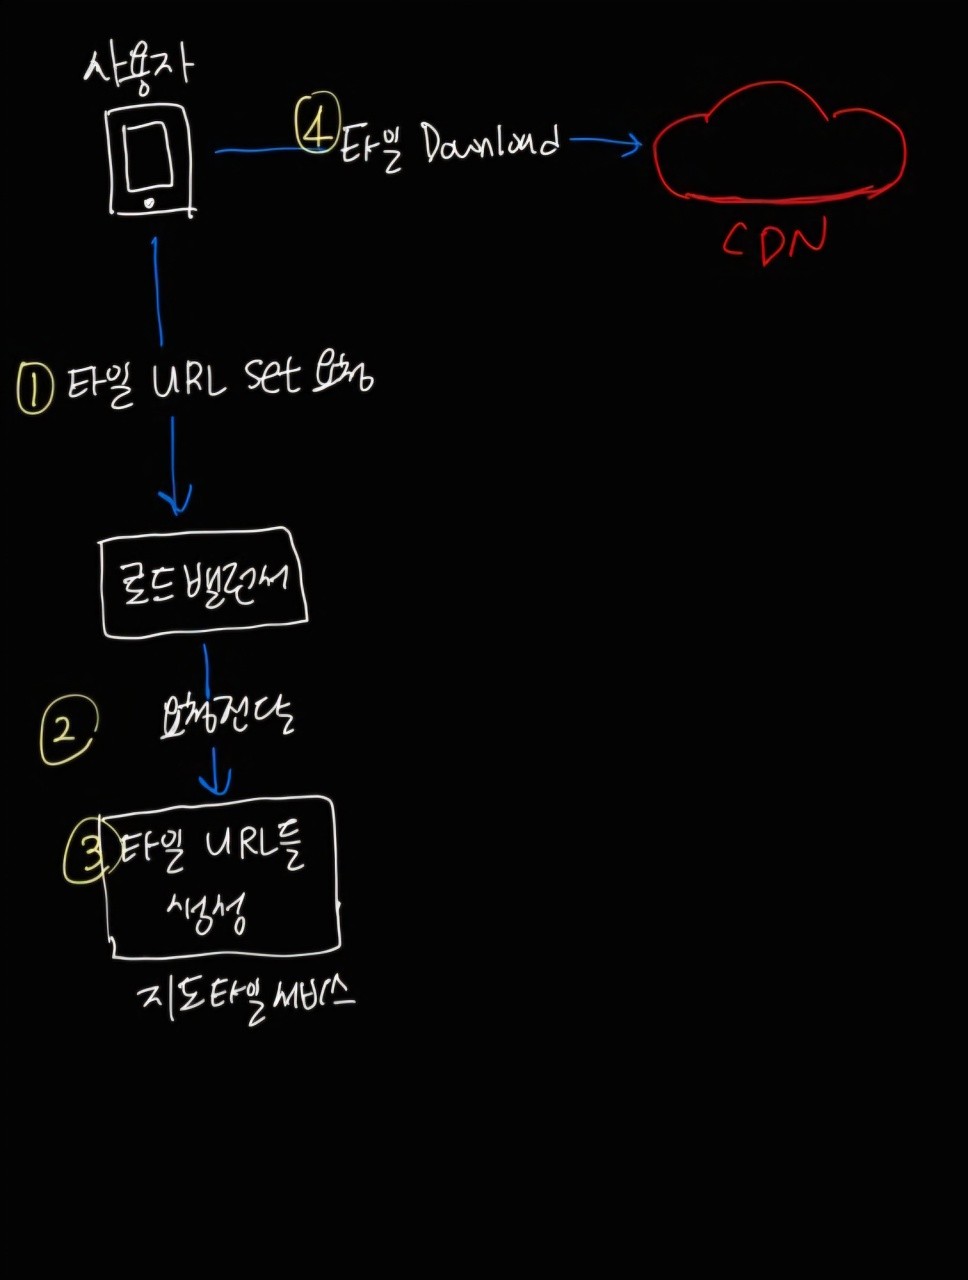 사용자
④ 타일 Download
CDN
① 타일 URL Set 요청
로드밸런서
② 요청전달
③ 타일 URL들
생성
지도타일서비스